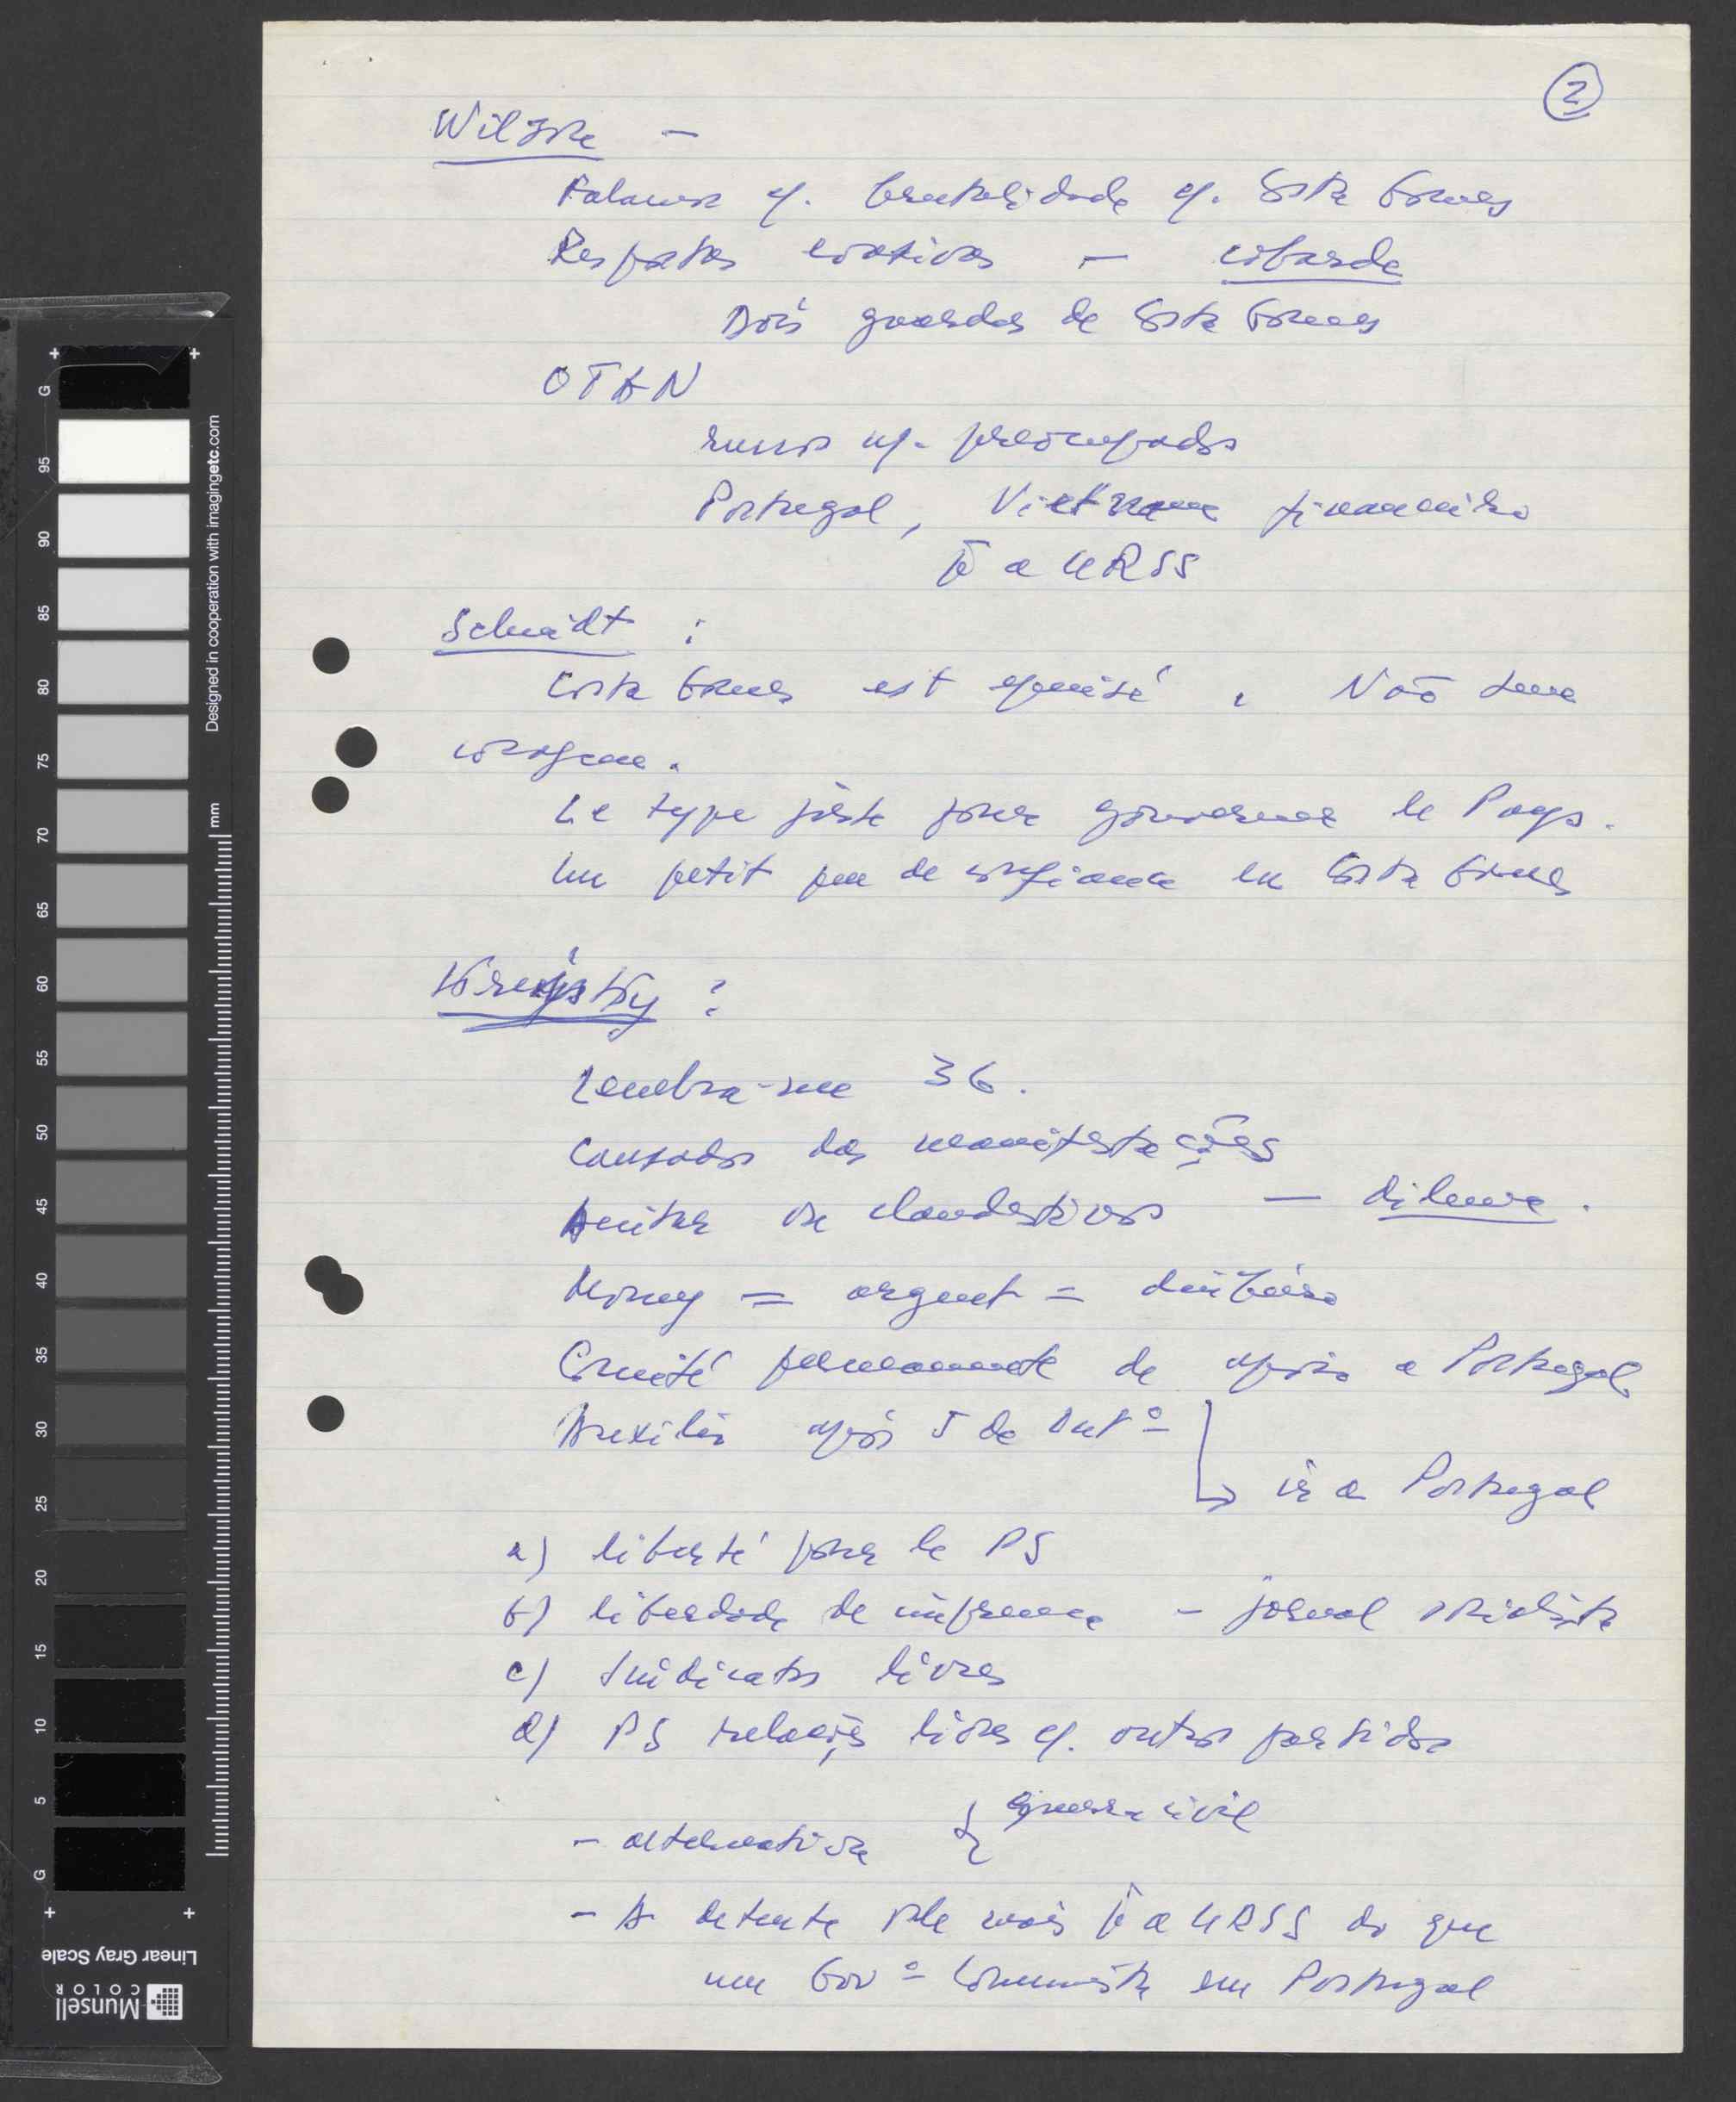 2
Wilson –
Falaram c/. brutalidade c/. Costa Gomes
Respostas evasivas – cobarde
Dois guardas de Costa Gomes
OTAN
russos mt. preocupados
Portugal, Vietname financeiro
p̂ a URSS
Schmidt :
Costa Gomes est épuisé. Não tem
coragem.
Le type juste pour gouverner le Pays.
Un petit peu de confiance en Costa Gomes
Kreisky :
Lembra-me 36.
Cansados das manifestações
Aceitar os clandestinos – dilema.
Money = argent = dinheiro
Comité permanente de apoio a Portugal
Auxílio após 5 de Outº
→ ir a Portugal
a) liberté pour le PS
b) liberdade de imprensa – jornal socialista
c) Sindicatos livres
d) PS relações livres c/. outros partidos
– alternativa { guerra civil
– A detente vale mais p̂ a URSS do que
um Govº Comunista em Portugal
Designed in cooperation with imagingetc.com
mm
G
95
90
85
80
75
70
65
60
55
50
45
40
35
30
25
20
15
10
5
G
Linear Gray Scale
Munsell
COLOR